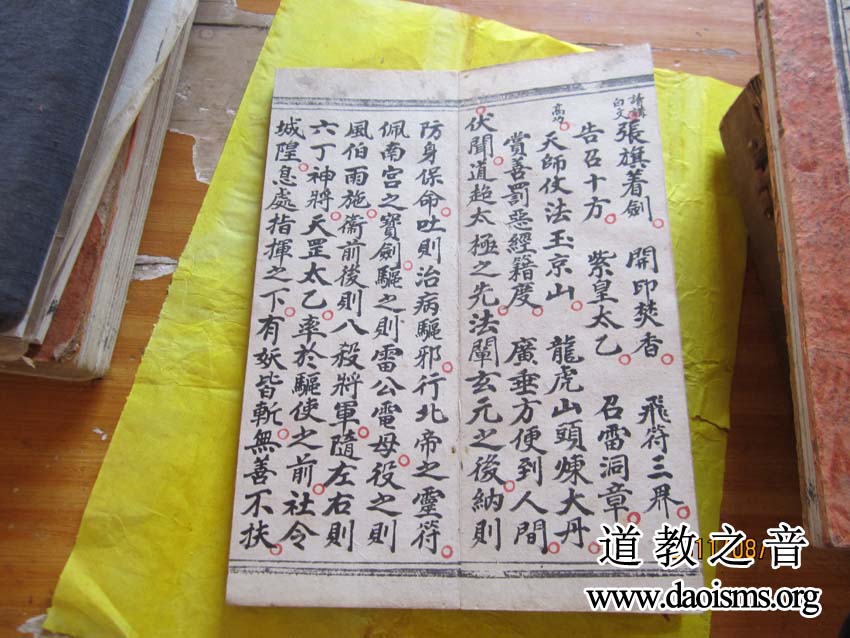 請稱白文
張旗着劍。 開印焚香。 飛符三界。
告召十方。 紫皇太乙。 召雷洞章。
高功
天師仗法玉京山。 龍虎山頭煉大丹。
賞善罰惡經籍度。 廣垂方便到人間。
伏聞道超太極之先。法闡玄元之後。納則
防身保命。吐則治病驅邪。行北帝之靈符。
佩南宮之寶劍。驅之則雷公電母。役之則
風伯雨施。衛前後則八殺將軍。隨左右則
六丁神將。天罡太乙。率於驅使之前。社令
城隍。息處指揮之下。有妖皆斬。無善不扶。
道教之音
www.daoisms.org